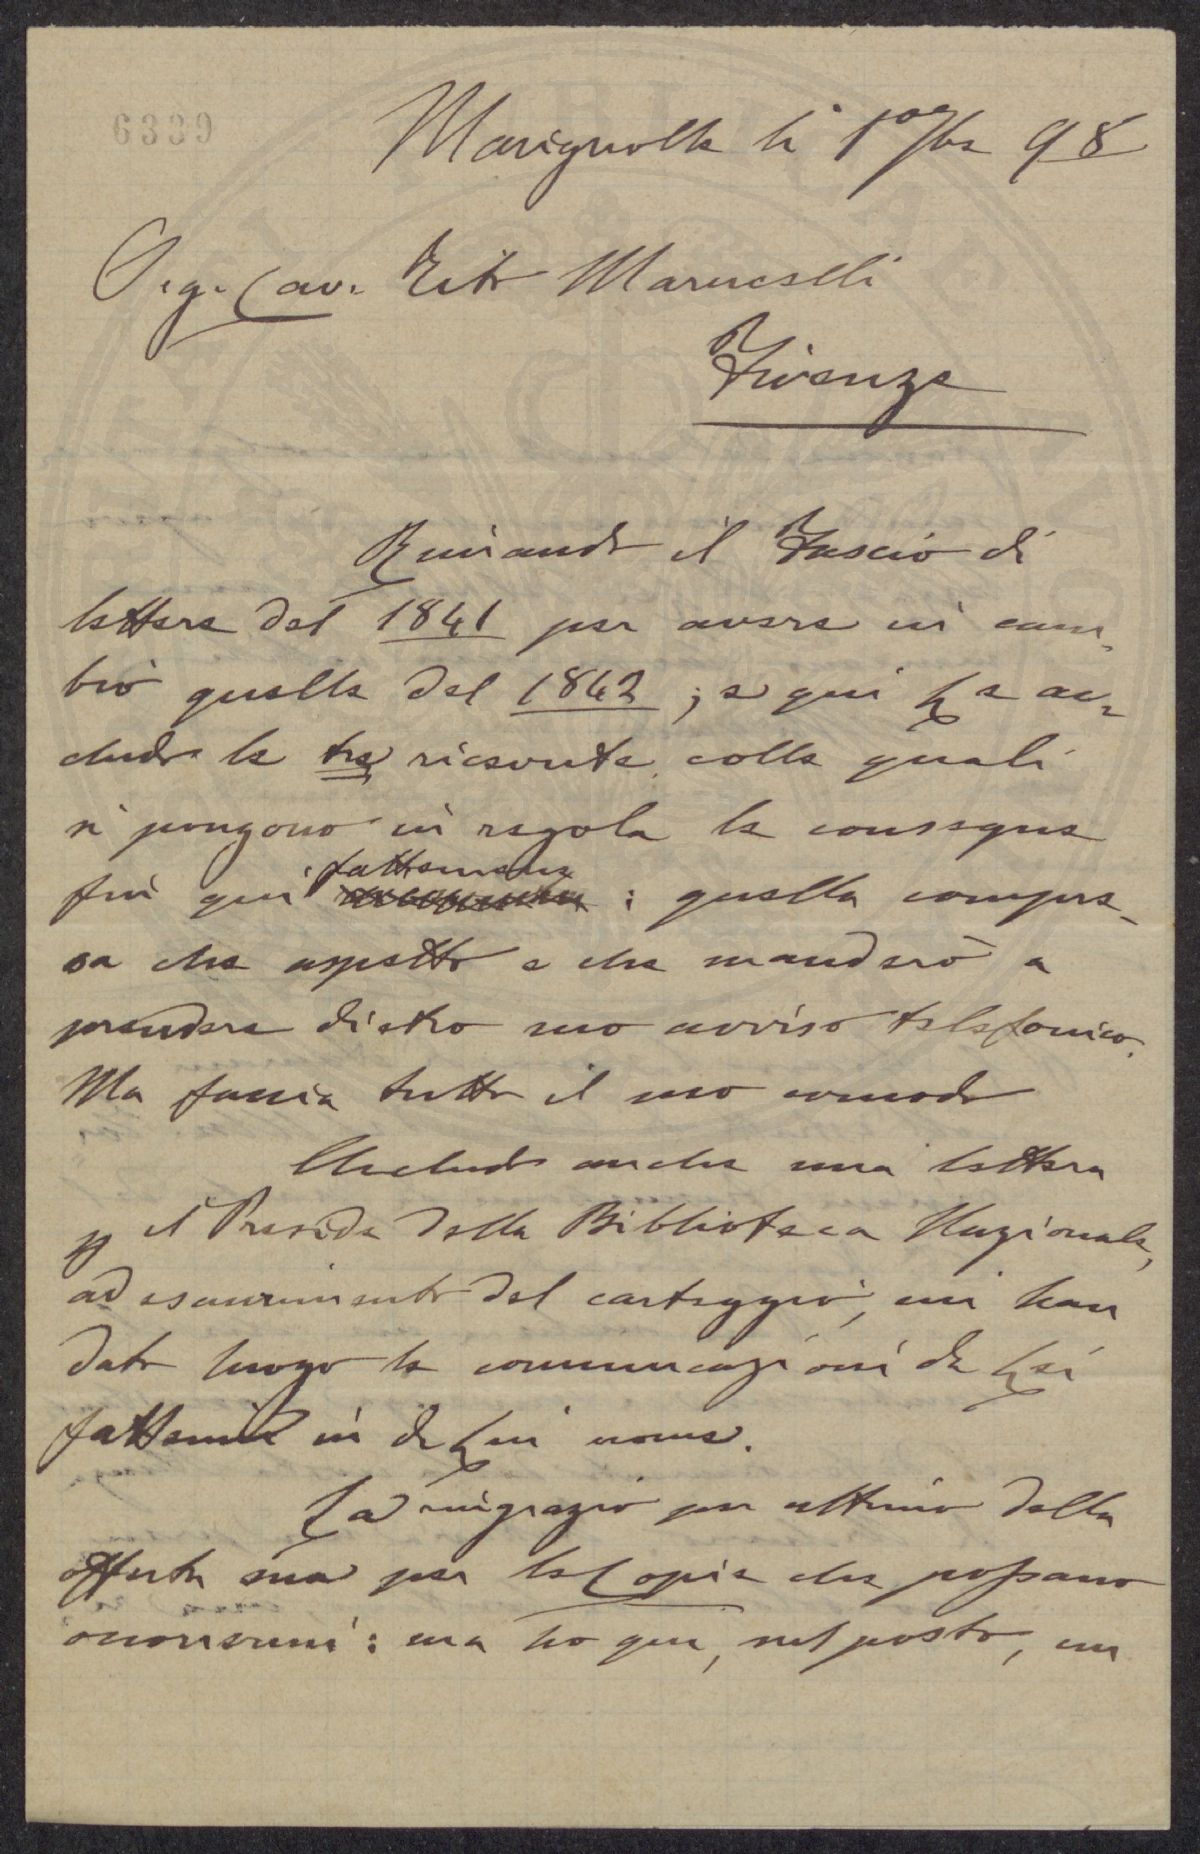 6339
Marignolle li 1° 7bre 98
Sig. Cav. Tito Marucelli
Firenze
Rimando il Fascio di
lettere del 1841 per avere in cam-
bio quelle del 1842; e qui Le ac-
cludo le tre ricevute colle quali
si pongono in regola le consegne
fin qui fattemene
: quella compre-
sa che aspetto e che manderò a
prendere dietro suo avviso telefonico.
Ma faccia tutto il suo comodo
Accludo anche una lettera
pp il Preside della Biblioteca Nazionale,
ad esaurimento del carteggio, cui han
dato luogo le comunicazioni da Lei
fattemi in di Lui nome.
La ringrazio per ultimo della
offerta sua per le Copie che possano
occorrermi: ma ho qui, sul posto, un